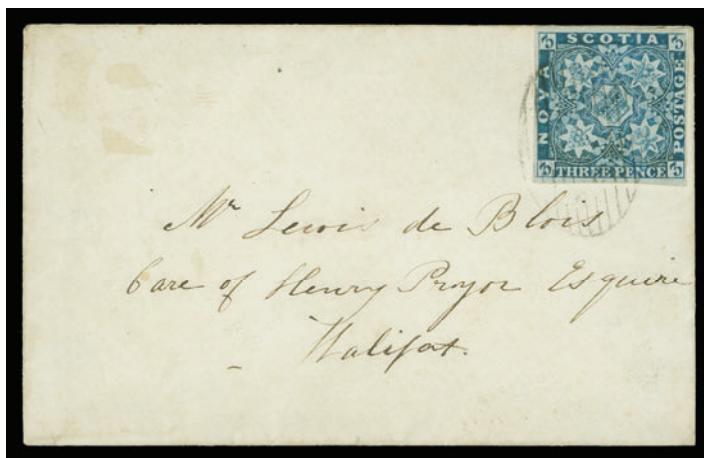 SCOTIA
NOVA
POSTAGE
THREE PENCE
Mr Lewis de Blois
Care of Henry Pryor Esquire
Halifax.